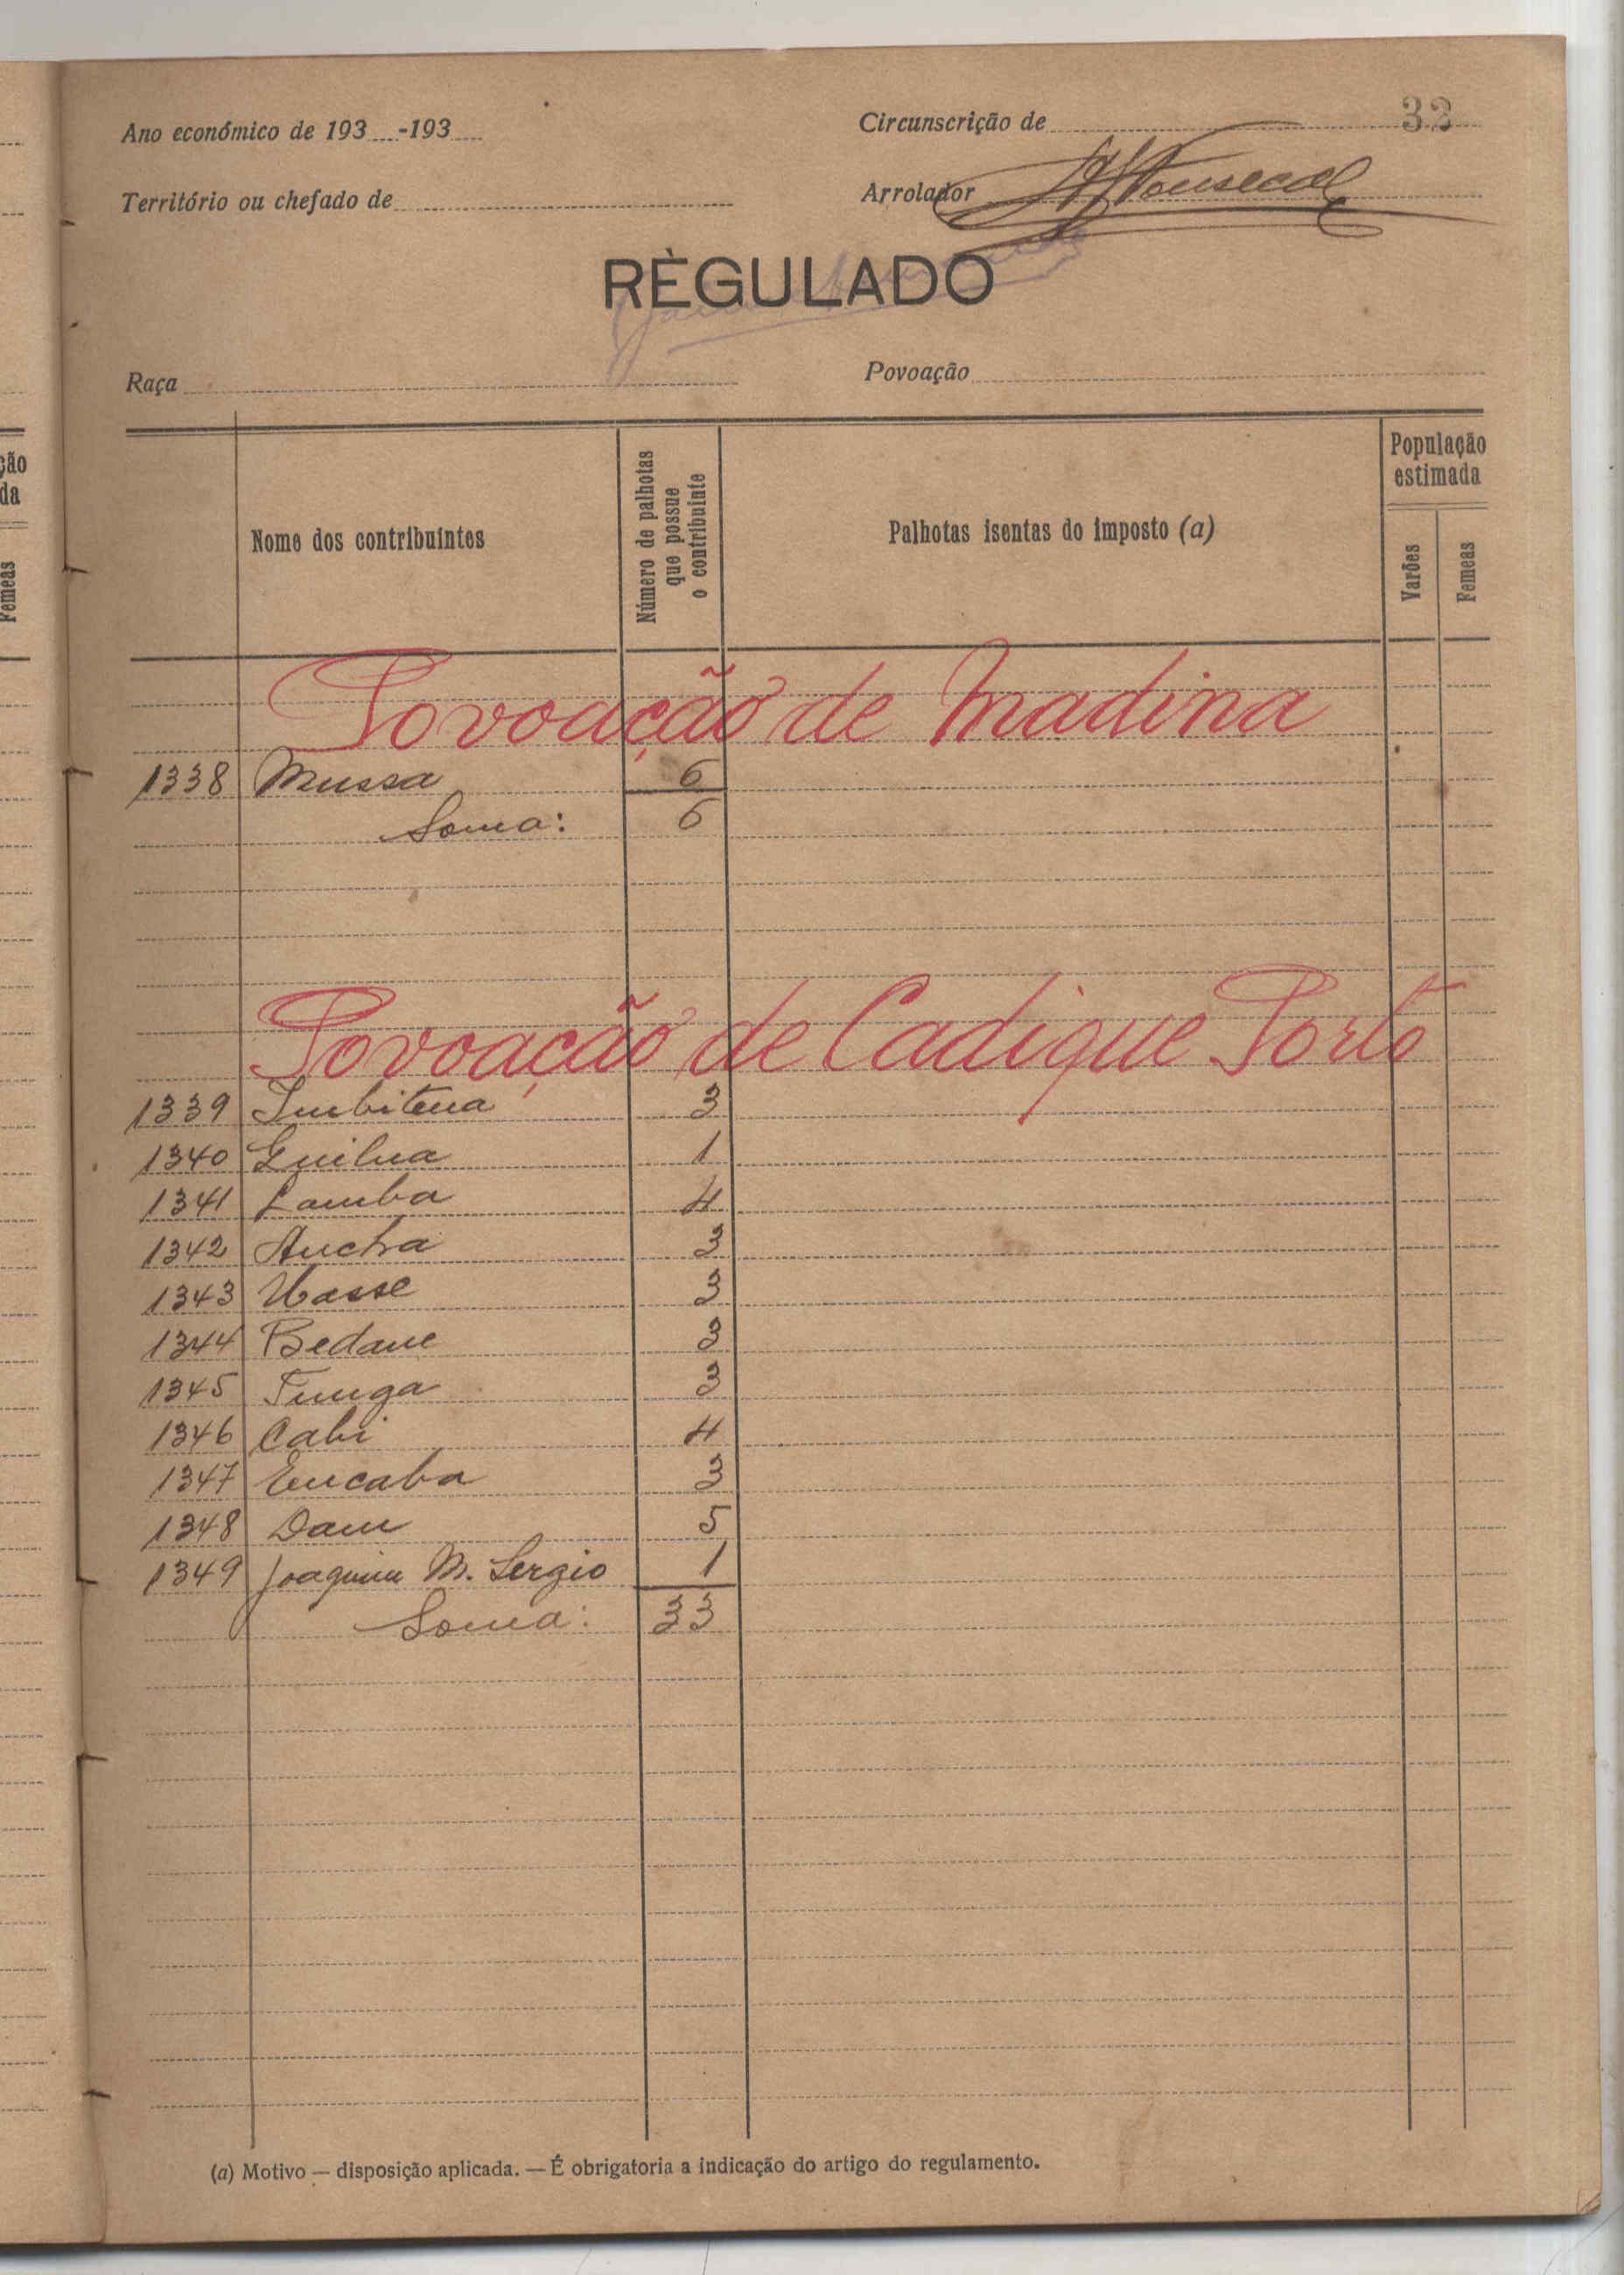 32
Ano económico de 193 -193
Circunscrição de
Território ou chefado de
Arrolador
RÈGULADO
Raça
Povoação
Nome dos contribuintes
Número de palhotas que possue o contribuinte
Palhotas isentas do imposto (a)
População estimada
Varões
Femeas
Povoação de Madina
1338 Mussa 6
Soma: 6
Povoação de Cadique Porto
1339 Imbitena 3
1340 1
1341 Lamba 4
1342 3
1343 3
1344 3
1345 Funga 3
1346 Cabi 4
1347 Encaba 3
1348 Dam 5
1349 Joaquim M. Sergio 1
Soma: 33
(a) Motivo — disposição aplicada. — É obrigatoria a indicação do artigo do regulamento.
ção
da
Femeas